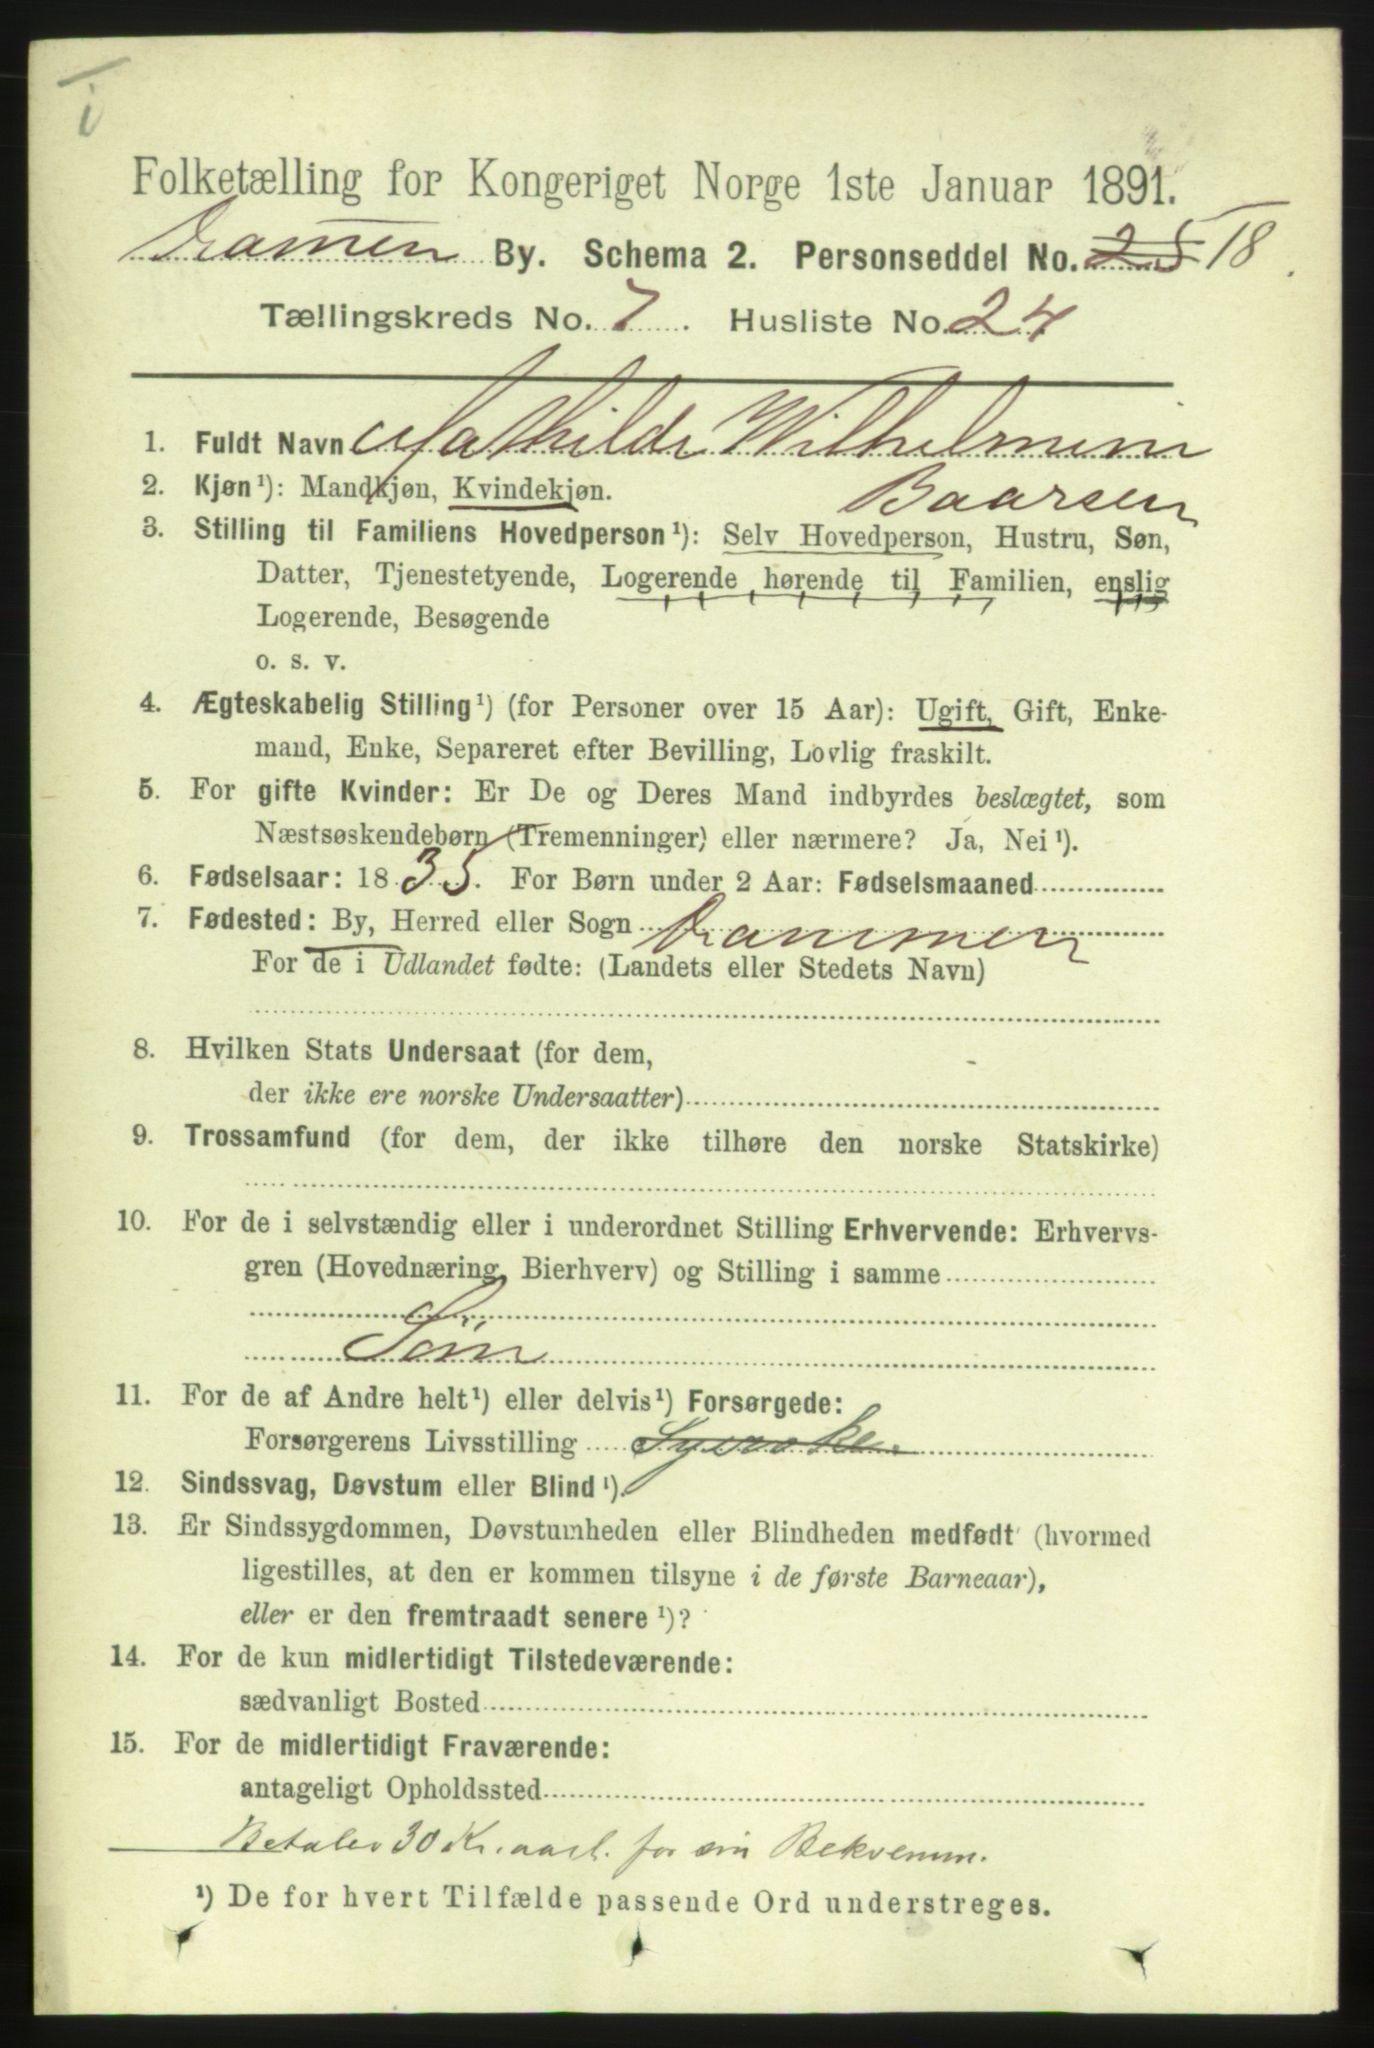 i
Folketælling for Kongeriget Norge 1ste Januar 1891.
Dramen By. Schema 2. Personseddel No. 25 18
Tællingskreds No. 7. Husliste No. 24
1. Fuldt Navn Mathilde Wilhelmine
2. Kjøn¹): Mandkjøn, Kvindekjøn. Baarsen
3. Stilling til Familiens Hovedperson¹): Selv Hovedperson, Hustru, Søn,
Datter, Tjenestetyende, Logerende hørende til Familien, enslig
Logerende, Besøgende
o. s. v.
4. Ægteskabelig Stilling¹) (for Personer over 15 Aar): Ugift, Gift, Enke-
mand, Enke, Separeret efter Bevilling, Lovlig fraskilt.
5. For gifte Kvinder: Er De og Deres Mand indbyrdes beslægtet, som
Næstsøskendebørn (Tremenninger) eller nærmere? Ja, Nei¹).
6. Fødselsaar: 1835. For Børn under 2 Aar: Fødselsmaaned
7. Fødested: By, Herred eller Sogn Drammen
For de i Udlandet fødte: (Landets eller Stedets Navn)
8. Hvilken Stats Undersaat (for dem,
der ikke ere norske Undersaatter)
9. Trossamfund (for dem, der ikke tilhøre den norske Statskirke)
10. For de i selvstændig eller i underordnet Stilling Erhvervende: Erhvervs-
gren (Hovednæring, Bierhverv) og Stilling i samme
Søm
11. For de af Andre helt¹) eller delvis¹) Forsørgede:
Forsørgerens Livsstilling
12. Sindssvag, Døvstum eller Blind¹).
13. Er Sindssygdommen, Døvstumheden eller Blindheden medfødt (hvormed
ligestilles, at den er kommen tilsyne i de første Barneaar),
eller er den fremtraadt senere¹)?
14. For de kun midlertidigt Tilstedeværende:
sædvanligt Bosted
15. For de midlertidigt Fraværende:
antageligt Opholdssted
Betaler 30 Kr. aarl. for sin Bekvemm.
¹) De for hvert Tilfælde passende Ord understreges.